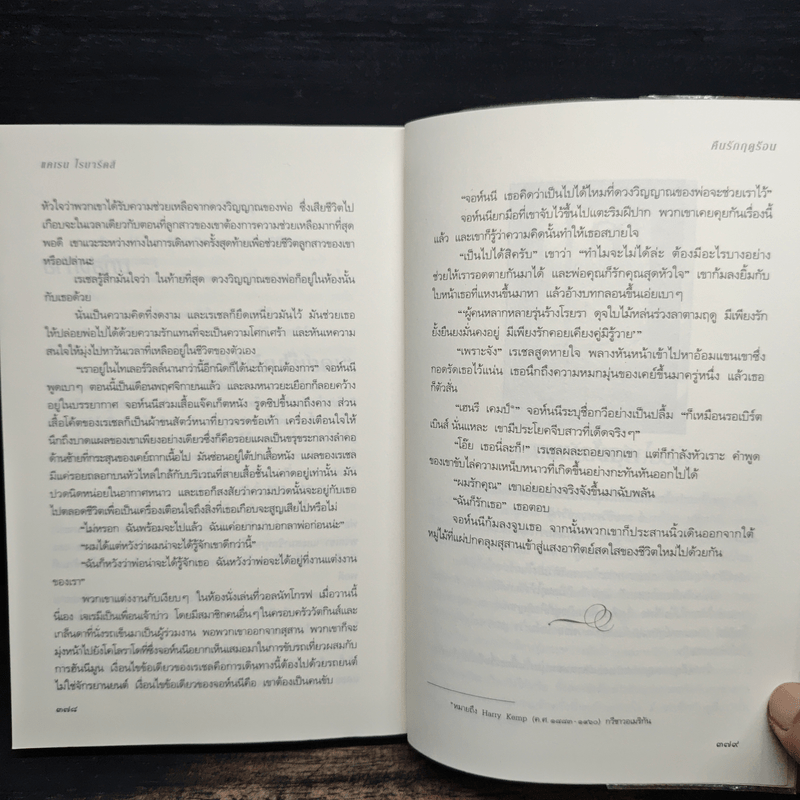 ชคเรน โรบาร์ดส์
หัวใจว่าพวกเขาได้รับความช่วยเหลือจากดวงวิญญาณของพ่อ ซึ่งเสียชีวิตไป
เกือบจะในเวลาเดียวกับตอนที่ลูกสาวของเขาต้องการความช่วยเหลือมากที่สุด
พอดี เขาแวะระหว่างทางในการเดินทางครั้งสุดท้ายเพื่อช่วยชีวิตลูกสาวของเขา
หรือเปล่านะ
เรเชลรู้สึกมั่นใจว่า ในท้ายที่สุด ดวงวิญญาณของพ่อก็อยู่ในห้องนั้น
กับเธอด้วย
นั่นเป็นความคิดที่งดงาม และเรเชลก็ยึดเหนี่ยวมันไว้ มันช่วยเธอ
ให้ปล่อยพ่อไปได้ด้วยความรักแทนที่จะเป็นความโศกเศร้า และหันเหความ
สนใจให้มุ่งไปหาวันเวลาที่เหลืออยู่ในชีวิตของตัวเอง
“เราอยู่ในไทเลอร์วิลล์นานกว่านี้อีกนิดก็ได้นะถ้าคุณต้องการ” จอห์นนี
พูดเบาๆ ตอนนี้เป็นเดือนพฤศจิกายนแล้ว และลมหนาวยะเยือกก็ลอยคว้าง
อยู่ในบรรยากาศ จอห์นนีสวมเสื้อแจ็กเก็ตหนัง รูดซิปขึ้นมาถึงคาง ส่วน
เสื้อโค้ตของเรเชลก็เป็นผ้าขนสัตว์หนาที่ยาวจรดข้อเท้า เครื่องเตือนใจให้
นึกถึงบาดแผลของเขาเพียงอย่างเดียวซึ่งก็คือรอยแผลเป็นขรุขระกลางลำคอ
ด้านซ้ายที่กระสุนของเคย์ถากเนื้อไป มันซ่อนอยู่ใต้ปกเสื้อหนัง แผลของเรเชล
มีแค่รอยถลอกบนหัวไหล่ใกล้กับบริเวณที่สายเสื้อชั้นในคาดอยู่เท่านั้น มัน
ปวดนิดหน่อยในอากาศหนาว และเธอก็สงสัยว่าความปวดนั้นจะอยู่กับเธอ
ไปตลอดชีวิตเพื่อเป็นเครื่องเตือนใจถึงสิ่งที่เธอเกือบจะสูญเสียไปหรือไม่
“ไม่หรอก ฉันพร้อมจะไปแล้ว ฉันแค่อยากมาบอกลาพ่อก่อนน่ะ”
“ผมได้แต่หวังว่าผมน่าจะได้รู้จักเขาดีกว่านี้”
“ฉันก็หวังว่าพ่อน่าจะได้รู้จักเธอ ฉันหวังว่าพ่อจะได้อยู่ที่งานแต่งงาน
ของเรา”
พวกเขาแต่งงานกันเงียบๆ ในห้องนั่งเล่นที่วอลนัทโกรฟ เมื่อวานนี้
นี่เอง เจเรมีเป็นเพื่อนเจ้าบ่าว โดยมีสมาชิกคนอื่นๆ ในครอบครัววัตกินส์และ
เกล็นดาที่นั่งรถเข็นมาเป็นผู้ร่วมงาน พอพวกเขาออกจากสุสาน พวกเขาก็จะ
มุ่งหน้าไปยังโคโลราโดที่ซึ่งจอห์นนีอยากเห็นเสมอมาในการขับรถเที่ยวผสมกับ
การฮันนีมูน เงื่อนไขข้อเดียวของเรเชลคือการเดินทางนี้ต้องไปด้วยรถยนต์
ไม่ใช่จักรยานยนต์ เงื่อนไขข้อเดียวของจอห์นนีคือ เขาต้องเป็นคนขับ
๓๗๘
คืนรักฤดูร้อน
“จอห์นนี เธอคิดว่าเป็นไปได้ไหมที่ดวงวิญญาณของพ่อจะช่วยเราไว้”
จอห์นนียกมือที่เขาจับไว้ขึ้นไปแตะริมฝีปาก พวกเขาเคยคุยกันเรื่องนี้
แล้ว และเขาก็รู้ว่าความคิดนั้นทำให้เธอสบายใจ
“เป็นไปได้สิครับ” เขาว่า “ทำไมจะไม่ได้ล่ะ ต้องมีอะไรบางอย่าง
ช่วยให้เรารอดตายกันมาได้ และพ่อคุณก็รักคุณสุดหัวใจ” เขาก้มลงยิ้มกับ
ใบหน้าเธอที่แหงนขึ้นมาหา แล้วอ้างบทกลอนขึ้นเอ่ยเบาๆ
“ผู้คนหลากหลายรุ่นร้างโรยรา ดุจใบไม้หล่นร่วงลาตามฤดู มีเพียงรัก
ยั้งยืนยงมั่นคงอยู่ มีเพียงรักคอยเคียงคู่มิรู้วาย*”
“เพราะจัง” เรเชลสูดหายใจ พลางหันหน้าเข้าไปหาอ้อมแขนเขาซึ่ง
กอดรัดเธอไว้แน่น เธอนึกถึงความหมกมุ่นของเคย์ขึ้นมาครู่หนึ่ง แล้วเธอ
ก็ตัวสั่น
“เฮนรี เคมป์*” จอห์นนีระบุชื่อกวีอย่างเป็นปลื้ม “ก็เหมือนรอเบิร์ต
เบินส์ นั่นแหละ เขามีประโยคจีบสาวที่เด็ดจริงๆ”
“โอ๊ย เธอนี่ละก็!” เรเชลผละถอยจากเขา แต่ก็กำลังหัวเราะ คำพูด
ของเขาขับไล่ความเหน็บหนาวที่เกิดขึ้นอย่างกะทันหันออกไปได้
“ผมรักคุณ” เขาเอ่ยอย่างจริงจังขึ้นมาฉับพลัน
“ฉันก็รักเธอ” เธอตอบ
จอห์นนีก้มลงจูบเธอ จากนั้นพวกเขาก็ประสานนิ้วเดินออกจากใต้
หมู่ไม้ที่แผ่ปกคลุมสุสานเข้าสู่แสงอาทิตย์สดใสของชีวิตใหม่ไปด้วยกัน
*หมายถึง Harry Kemp (ค.ศ. ๑๘๘๓-๑๙๖๐) กวีชาวอเมริกัน
๓๗๙